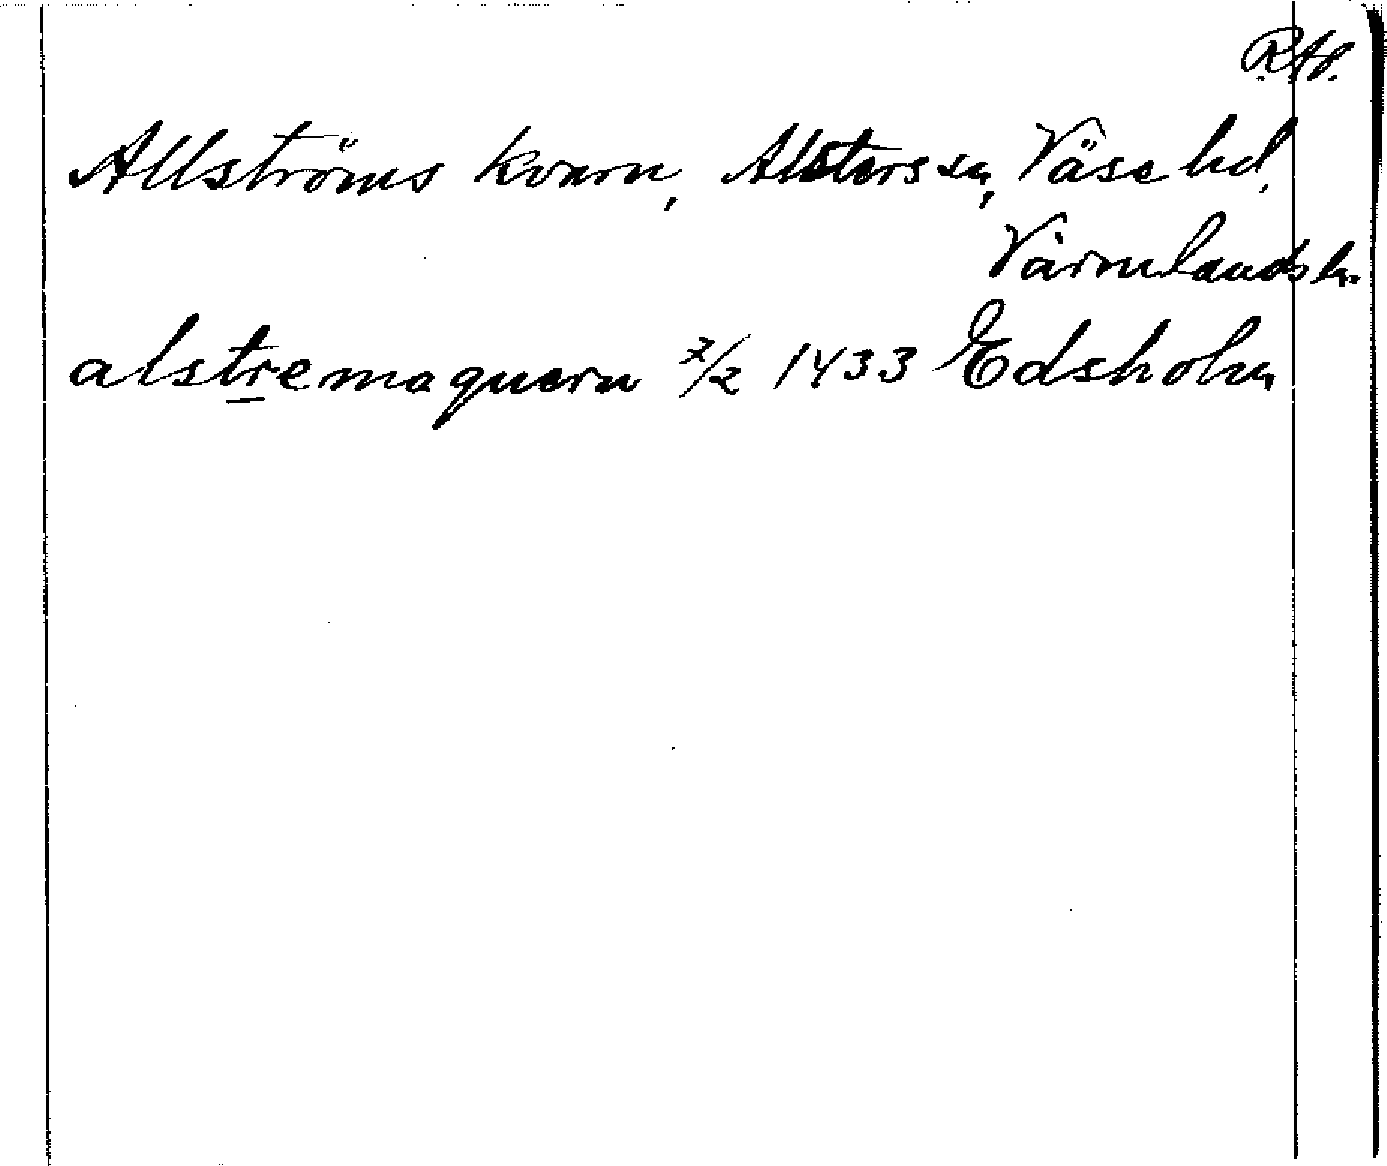 RAP.
Allströms kvarn, Alsters sn, Väse hd,
Värmlands l.
alstremaquern 7/2 1433 Edsholm